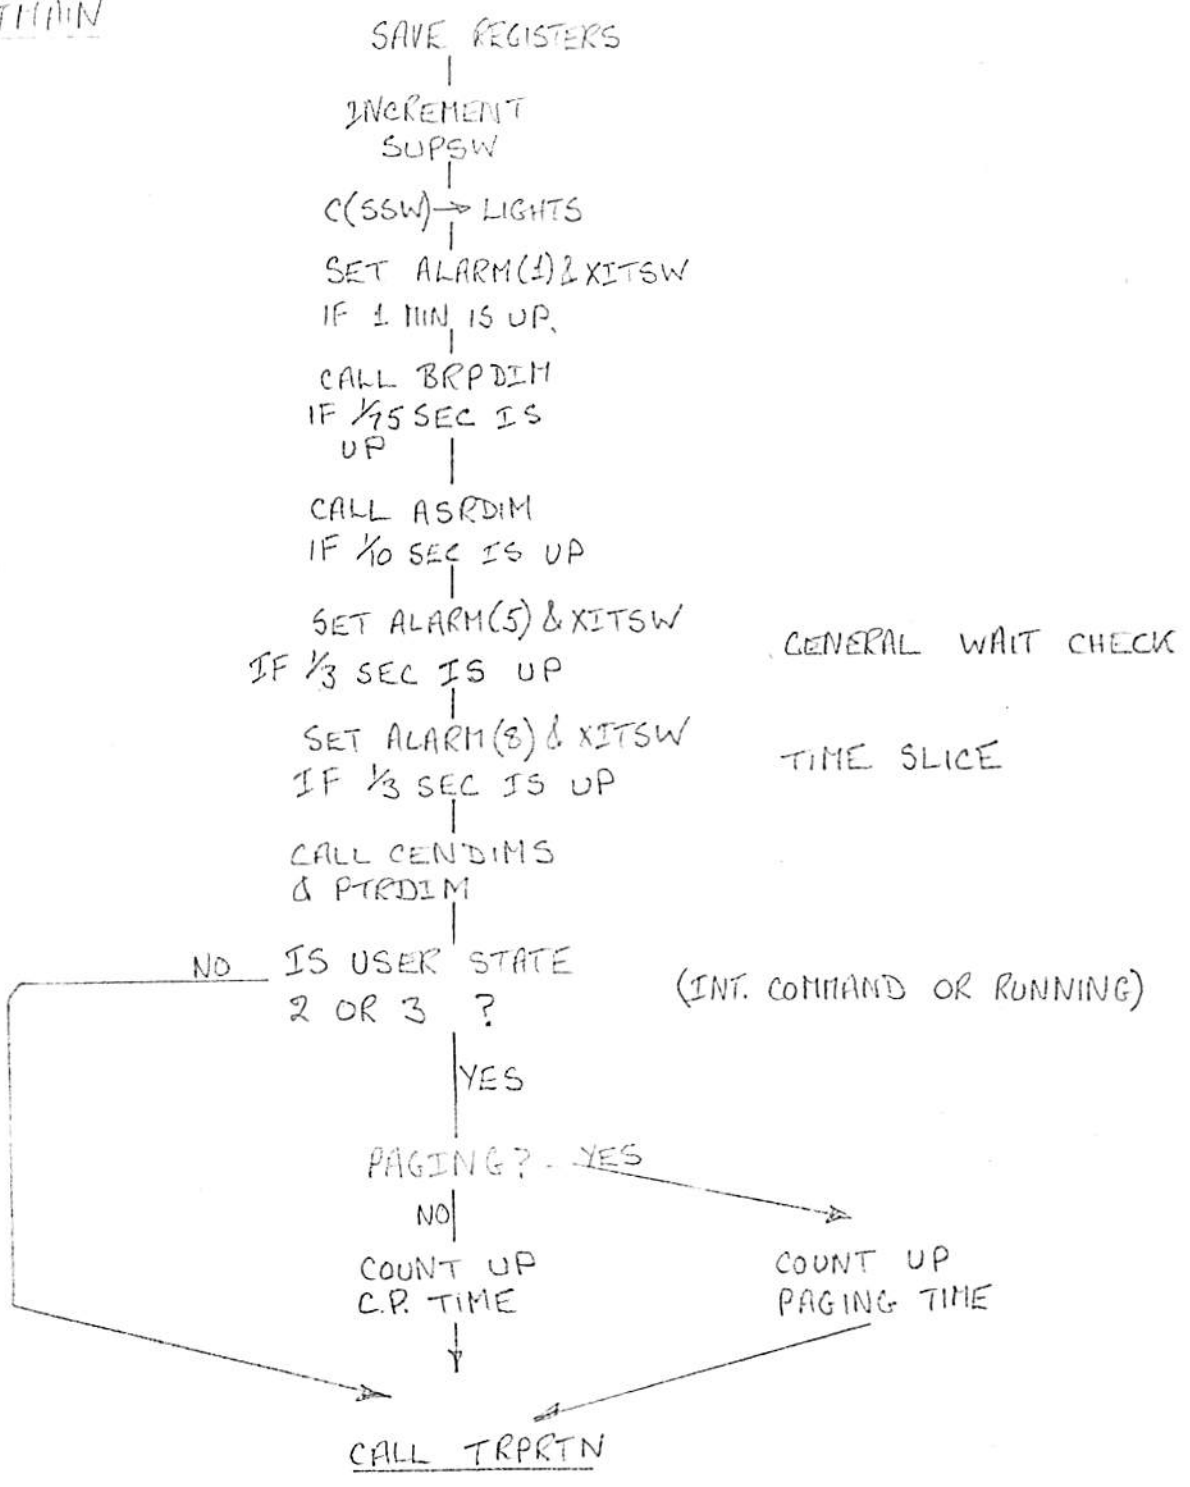 SAVE REGISTERS
INCREMENT
SUPSW
C(SSW)→ LIGHTS
SET ALARM(1) & XITSW
IF 1 MIN IS UP.
CALL BRPDIM
IF 1/75 SEC IS
UP
CALL ASRDIM
IF 1/10 SEC IS UP
SET ALARM(5) & XITSW
IF 1/3 SEC IS UP
GENERAL WAIT CHECK
SET ALARM(8) & XITSW
IF 1/3 SEC IS UP
TIME SLICE
CALL CENDIMS
& PTRDIM
NO
IS USER STATE
2 OR 3 ?
(INT. COMMAND OR RUNNING)
YES
PAGING? YES
NO
COUNT UP
C.P. TIME
COUNT UP
PAGING TIME
CALL TRPRTN